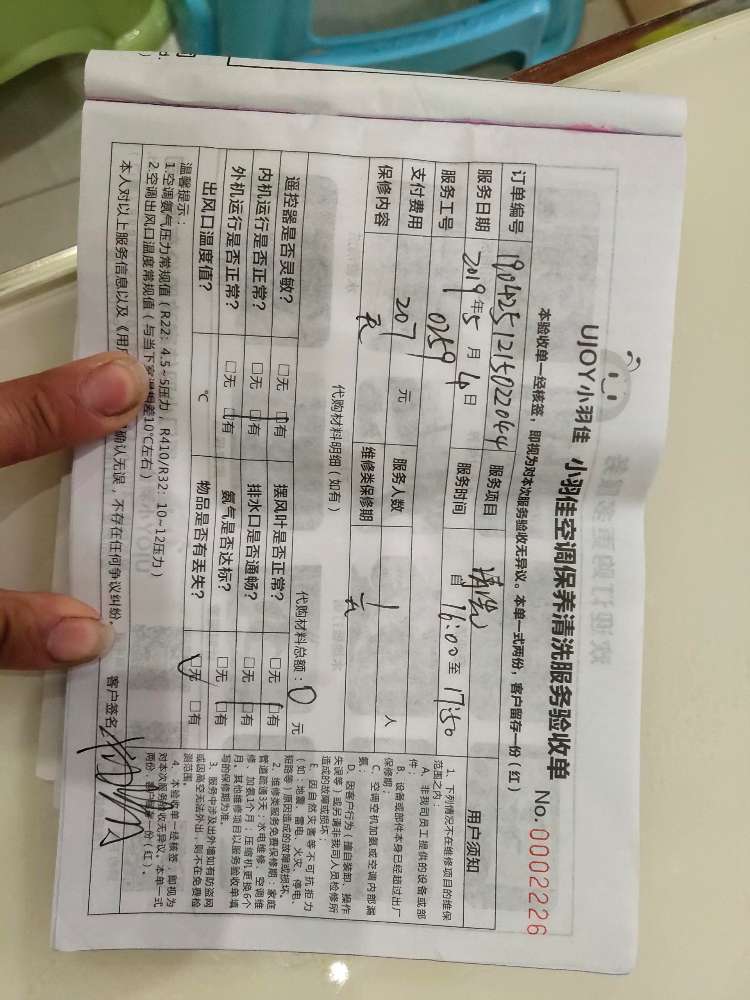 UJOY小羽佳 小羽佳空调保养清洗服务验收单 No.0002226
本验收单一经核签，即视为对本次服务验收无异议。本单一式两份，客户留存一份（红）
订单编号 1904251215022044 服务项目 清洗
服务日期 2019年5月4日 服务时间 自16:00至17:50
服务工号 0259
支付费用 207 元 服务人数 1 人
保修内容 无 维修类保修期 无
代购材料明细（如有） 代购材料总额：0 元
遥控器是否灵敏？ □无 □有 摆风叶是否正常？ □无 □有
内机运行是否正常？ □无 □有 排水口是否通畅？ □无 □有
外机运行是否正常？ □无 □有 氨气是否达标？ □无 □有
出风口温度值？ ℃ 物品是否有丢失？ □无 □有
温馨提示：
1.空调氨气压力常规值（R22：4.5~5压力，R410/R32：10~12压力）
2.空调出风口温度常规值（与当下 相差10℃左右）
本人对以上服务信息以及《用户 确认无误，不存在任何争议纠纷。 客户签名
用户须知
1、下列情况不在维修项目的维保
范围之内：
A、非我司员工提供的设备或部
件；
B、设备或部件本身已经超过出厂
保修期；
C、空调等机加氨或空调内部漏
氨；
D、因客户行为（擅自装卸、操作
失误等）或另请非我司人员检修所
造成的故障或损坏；
E、因自然灾害等不可抗拒力
（如：地震、雷电、火灾、停电、
短路等）原因造成的故障或损坏。
2、维修类服务免费保修期：家庭
管道疏通3天；水电维修、空调维
修、加氨1个月；压缩机更换6个
月；其他维修项目以服务验收单填
写的保修期为准。
3、服务中涉及出外墙如有防盗网
或因高空无法外出，则不在免费检
测范围。
4、本验收单一经核签，即视为
对本次服务验收无异议。本单一式
两份，客户留存一份（红）。